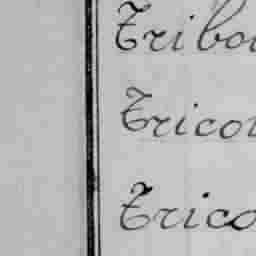 Tribou
Tricou
Trico